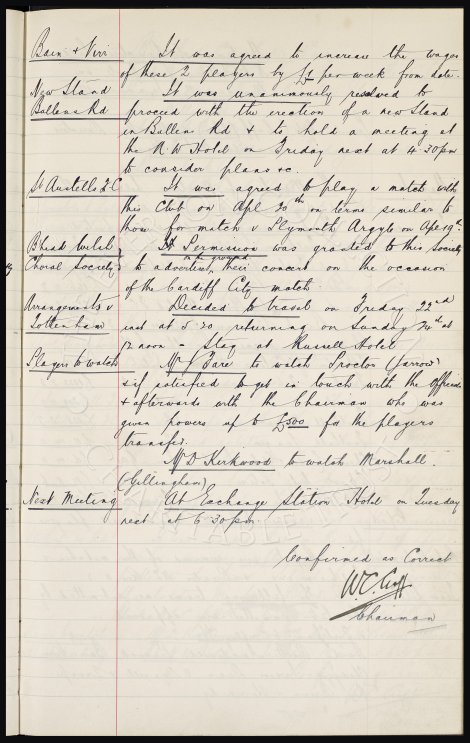 Bain & Virr It was agreed to increase the wages
of these 2 players by £1 per week from date.
New Stand It was unanimously resolved to
Bullens Rd proceed with the erection of a new Stand
in Bullens Rd & to hold a meeting at
the N W Hotel on Friday next at 4.30pm
to consider plans &c.
St Austells F.C It was agreed to play a match with
this Club on Apl 20th on terms similar to
those for match v Plymouth Argyle on Apl 19th.
B'head Welsh Permission was granted to this Society
on the ground
Choral Society to advertise their concert on the occasion
of the Cardiff City match.
Arrangements v Decided to travel on Friday 22nd
Tottenham inst at 5.20 returning on Sunday 24th at
12 noon - Stay at Russell Hotel
Players to watch Mr J Fare to watch Proctor (Jarrow)
& if satisfied to get in touch with the Officials
& afterwards with the Chairman who was
given powers up to £300 for the players
transfer.
Mr D Kirkwood to watch Marshall.
(Gillingham)
Next Meeting At Exchange Station Hotel on Tuesday
next at 6.30pm.
Confirmed as Correct
W.C. Cuff
Chairman